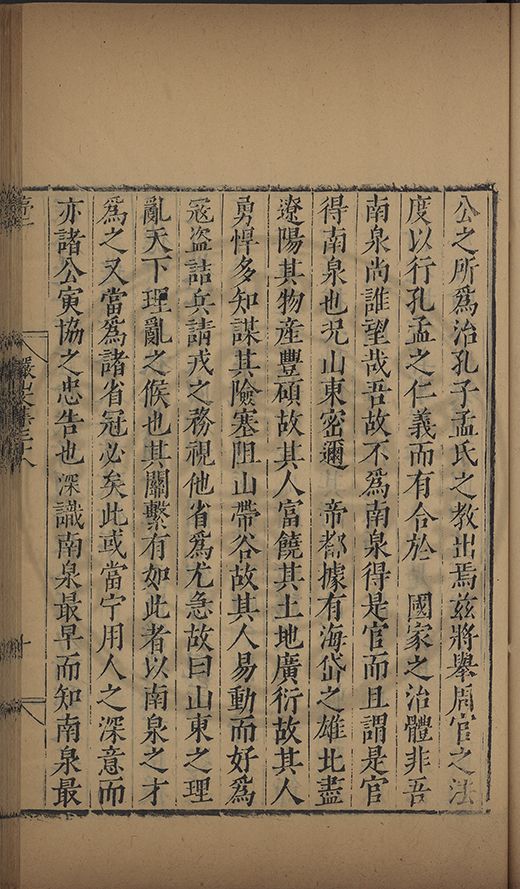 公之所爲治孔子孟氏之教出焉兹將舉周官之法
度以行孔孟之仁義而有合於 國家之治體非吾
南泉尚誰望哉吾故不爲南泉得是官而且謂是官
得南泉也况山東密邇 帝都據有海岱之雄北盡
遼陽其物產豐碩故其人富饒其土地廣衍故其人
勇悍多知謀其險塞阻山帶谷故其人易動而好爲
宼盗詰兵請戎之務視他省爲尤急故曰山東之理
亂天下理亂之候也其關繫有如此者以南泉之才
爲之又當爲諸省冠必矣此或當宁用人之深意而
亦諸公寅協之忠告也深識南泉最早而知南泉最